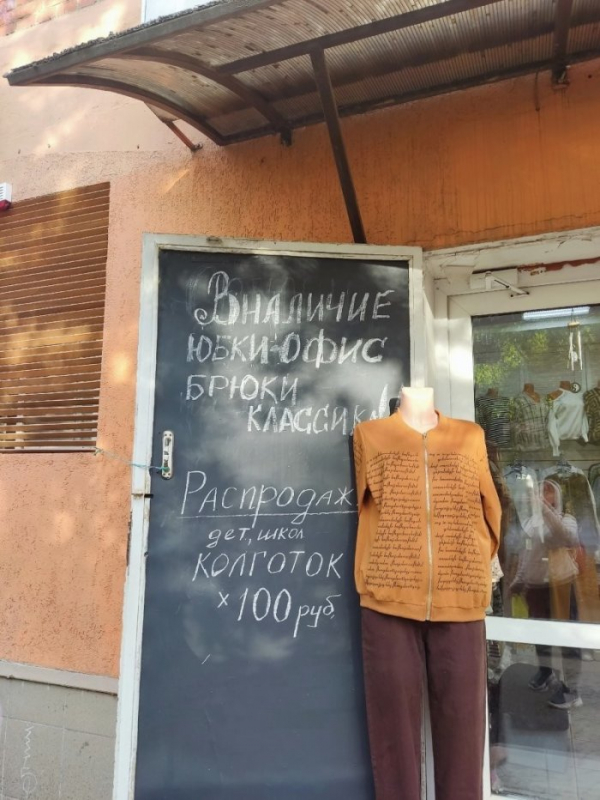 Вналичие
юбки-офис
брюки
классика!
Распродаж
дет, школ
колготок
x 100 руб.